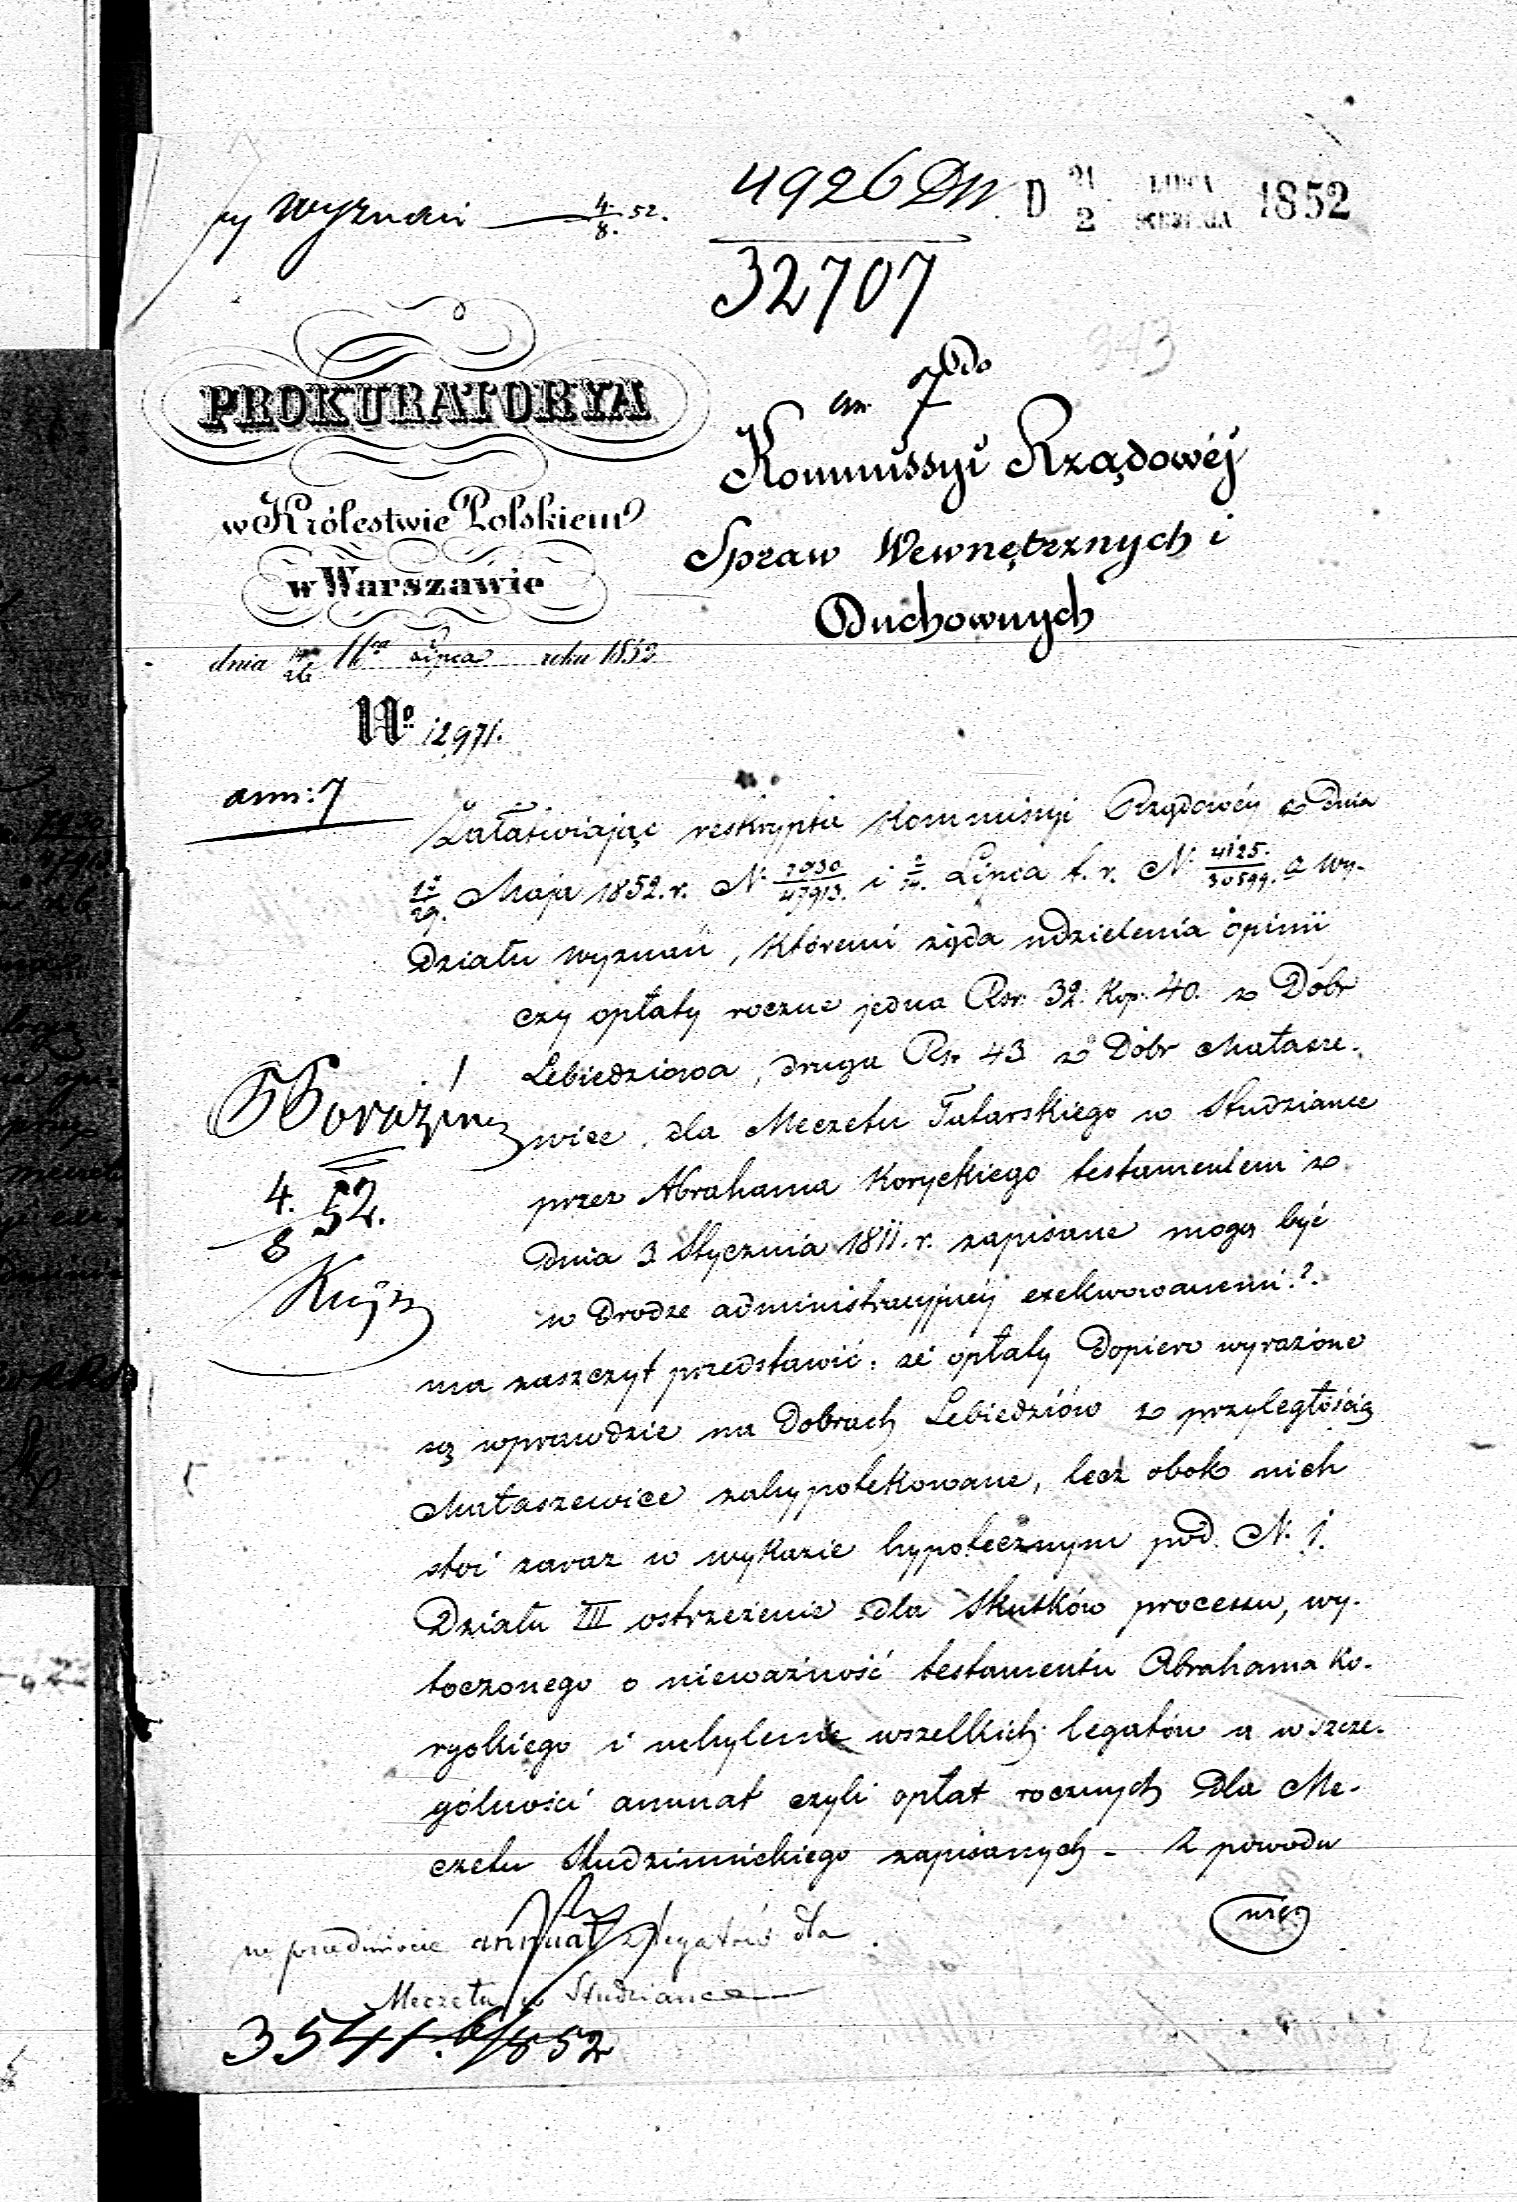 Wyznań 4/8. 52.
4926
32707
D 21/2 LIPCA 1852
343
PROKURATORYA
w Królestwie Polskiem
w Warszawie
dnia 26 Lipca roku 1852
No 12971.
ann: 7
Do
Kommissyi Rządowéj
Spraw Wewnętrznych i
Duchownych
ann: 7
Załatwiając reskrypta Kommissyi Rządowéj z dnia
/29. Maja 1852. r. N. /47913. i 2/14. Lipca t. r. N. 4125./30599. a Wy-
działu Wyznań, któremi żąda udzielenia opinii
czy opłaty roczne jedna Rsr. 32. Kop: 40. z Dóbr
Lebiedziowa, druga Rsr 43 z Dóbr Małasze-
wice, dla Meczetu Tatarskiego w Studziance
przez Abrahama Koryckiego testamentem z
dnia 3 Stycznia 1811. r. zapisane mogą być
w drodze administracyjnéj exekwowanemi?.
ma zaszczyt przedstawić: że opłaty dopiero wyrażone
są wprawdzie na Dobrach Lebiedziów z przyległością
Małaszewice zahypotekowane, lecz obok nich
stoi zaraz w wykazie hypotecznym pod N. 1.
Działu III ostrzeżenie dla skutków processu, wy-
toczonego o nieważność testamentu Abrahama Ko-
ryckiego i uchylenie wszelkich legatów a w szcze-
gólności annuat czyli opłat rocznych dla Me-
czetu Studzinnickiego zapisanych - Z powodu
4. 52.
8
w przedmiocie annuat z legatów dla
Meczetu w Studziance
3541. 6/852